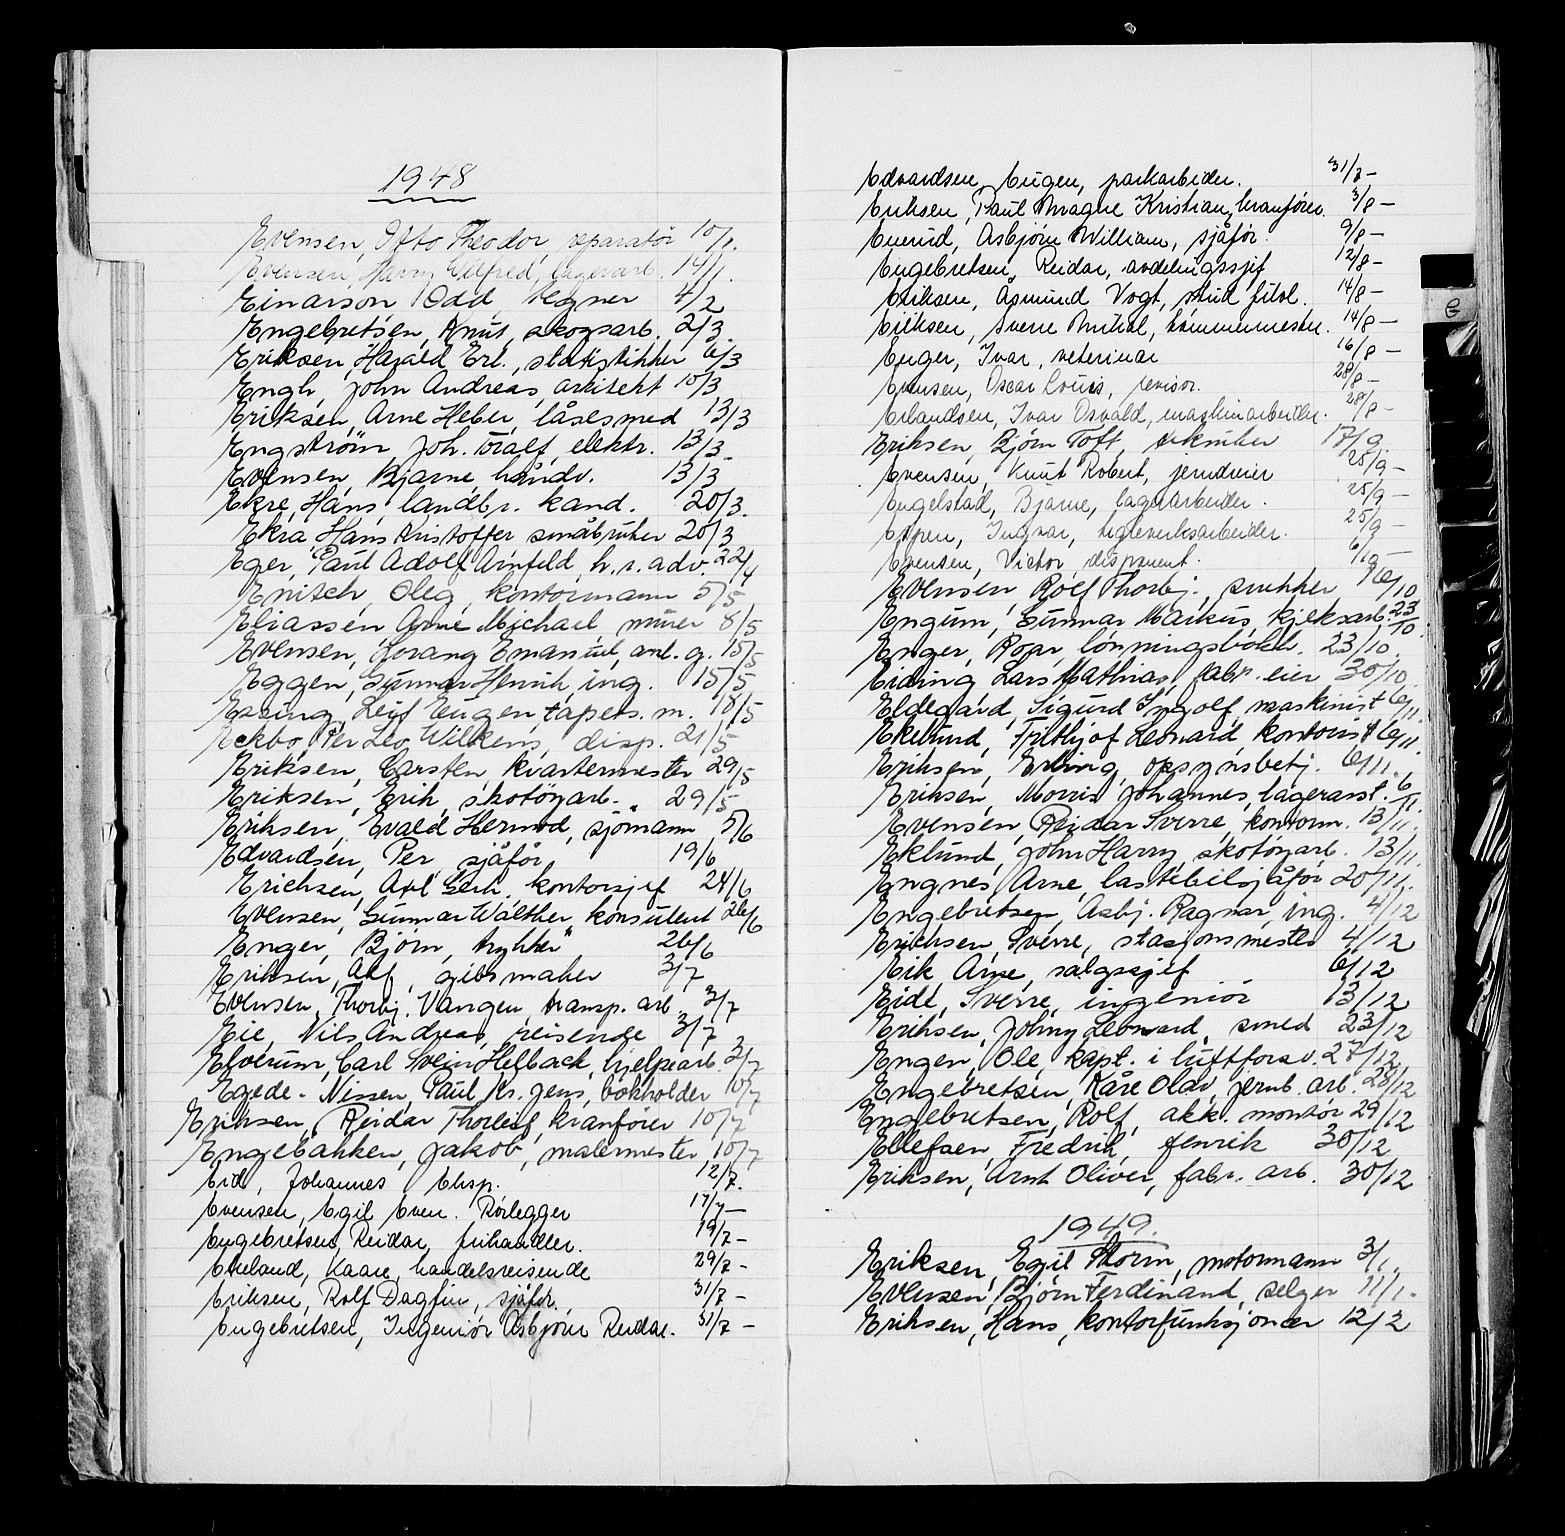 1948
Evensen, Otto Theodor, reparatør 10/1.
Evensen, Harry Wilfred, lagerarb. 14/1.
Einarson Odd tegner 4/2
Engebretsen, Knut, skogsarb. 2/3
Eriksen, Harald Erl., statistikker 6/3
Engh, John Andreas, arkitekt 10/3
Eriksen, Arne Heber, låsesmed 13/3
Engström, Joh. Toralf, elektr. 13/3
Evensen, Bjarne, håndv. 13/3
Ekre, Hans, landbr. kand. 20/3.
Ekra Hans Kristoffer småbruker 20/3
Eger, Paul Adolf Arnfeld, h.r.adv. 22/4
Enitch, Oleg, kontormann 5/5
Eliassen Arne Michael, murer 8/5
Evensen, Lorang Emanuel, anl. g. 15/5
Eggen, Gunnar Henrik, ing. 15/5
Essing, Leif Eugen, tapets. m. 18/5
Eckbo, Per Leo Wilkens, disp. 21/5
Eriksen, Carsten, kvartermester 29/5
Eriksen, Erik, skotøyarb. 29/5
Eriksen, Evald Hermod, sjømann 5/6
Edvardsen, Per sjåfør 19/6
Erichsen, Axl Gerh, kontorsjef 24/6
Evensen, Gunnar Walther, konsulent 26/6
Enger, Bjørn, trykker 26/6
Eriksen, Alf, gibsmaker 3/7
Evensen, Thorbj. Vangen, transp. arb 3/7
Eie, Nils Andreas, reisende 3/7
Elverum, Carl Svein Helback, hjelpearb. 3/7
Egede-Nissen, Paul Kr. Jens, bokholder 10/7
Eriksen, Reidar Thorleif, kranfører 10/7
Engebakken, Jakob, malermester 10/7
Eid, Johannes, eksp. 12/7.
Evensen, Egil Even. Rørlegger 17/7 —
Engebretsen, Reidar, frihandler. 19/7 –
Ekeland, Kaare, handelsreisende 29/7 –
Eriksen, Rolf Dagfin, sjåfør. 31/7 –
Engebretsen, Ingeniør Asbjørn Reidar. 31/7 –
Edvardsen, Eugen, parkarbeider. 31/7 –
Eriksen, Paul Magne Kristian, kranfører. 3/8 –
Enerud, Asbjørn William, sjåfør. 9/8 –
Engebretsen, Reidar, avdelingssjef 12/8 –
Eriksen, Åsmund Vogt, stud filol. 14/8 –
Eriksen, Sverre Mikal, tømmermester. 14/8 –
Enger, Ivar, veterinær 16/8 –
Evensen, Oscar Louis, revisor. 28/8 –
Erlandsen, Ivar Osvald, maskinarbeider. 28/8 –
Eriksen, Bjørn Toft, tekniker 17/9
Evensen, Knut Robert, jerndreier 25/9 –
Engelstad, Bjarne, lagerarbeider. 25/9 –
Espen, Ingvar, teglverksarbeider. 25/9 –
Evensen, Victor, disponent. 6/10 –
Evensen, Rolf Thorbj., snekker 16/10
Engum, Gunnar Markus, kjeksarb. 23/10.
Enger, Roar, lønningsbokh. 23/10.
Eiding Lars Mathias, fabr. eier 30/10.
Eldegard, Sigurd Ingolf, maskinist 6/11.
Eklund, Frithjof Leonard, kontorist 6/11.
Eriksen, Erling, opsynsbetj. 6/11.
Eriksen, Morris Johannes, lagerasst. 6/11.
Evensen, Reidar Sverre, kontorm. 13/11.
Eklund, John Harry, skotøyarb. 13/11.
Engnes, Arne, lastebilsjåfør 20/11.
Engebretsen, Asbj. Ragnar, ing. 4/12
Erichsen, Sverre, stasjonsmester 4/12
Eik, Arne, salgssjef 6/12
Eide, Sverre, ingeniør 13/12
Eriksen, Johny Leonard, smed 23/12
Engen, Ole, kapt. i luftforsv. 27/12
Engebretsen, Kåre Olav, jernb. arb. 28/12
Engebretsen, Rolf, akk. montør 29/12
Ellefsen, Fredrik, fenrik 30/12
Eriksen, Arnt Oliver, fabr. arb. 30/12
1949.
Eriksen, Egil Thorm, motormann 3/1.
Evensen, Bjørn Ferdinand, selger 11/1.
Eriksen, Hans, kontorfunksjonær 12/2